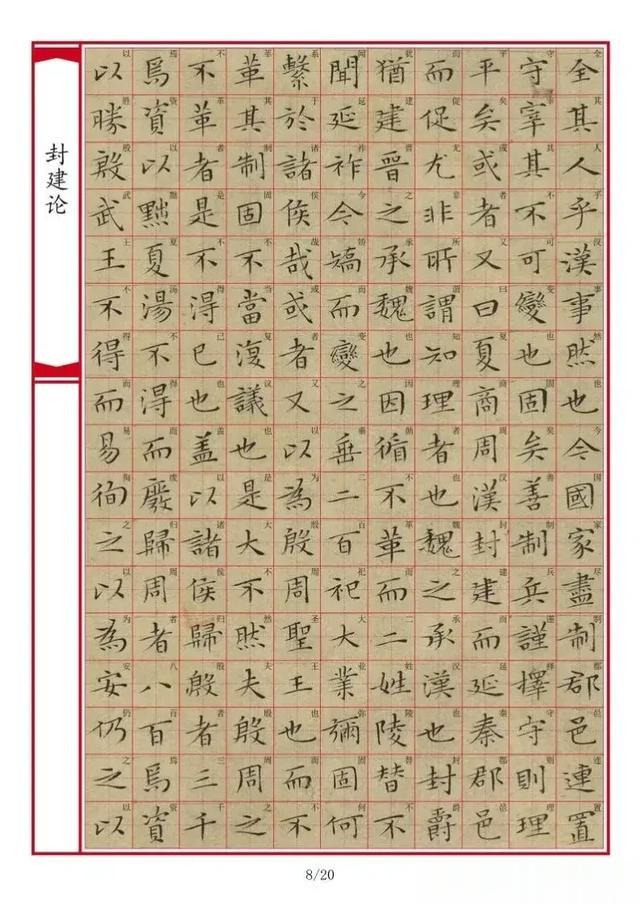 全其人乎漢事然也今國家盡制郡邑連置
守宰其不可變也固矣善制兵謹擇守則理
平矣或者又曰夏商周漢封建而延秦郡邑
而促尤非所謂知理者也魏之承漢也封爵
猶建晉之承魏也因循不革而二姓陵替不
聞延祚今矯而變之垂二百祀大業彌固何
繫於諸侯哉或者又以為殷周聖王也而不
革其制固不當復議也是大不然夫殷周之
不革者是不得已也盖以諸侯歸殷者三千
焉資以黜夏湯不得而廢歸周者八百焉資
以勝殷武王不得而易徇之以為安仍之以
封建论
8/20